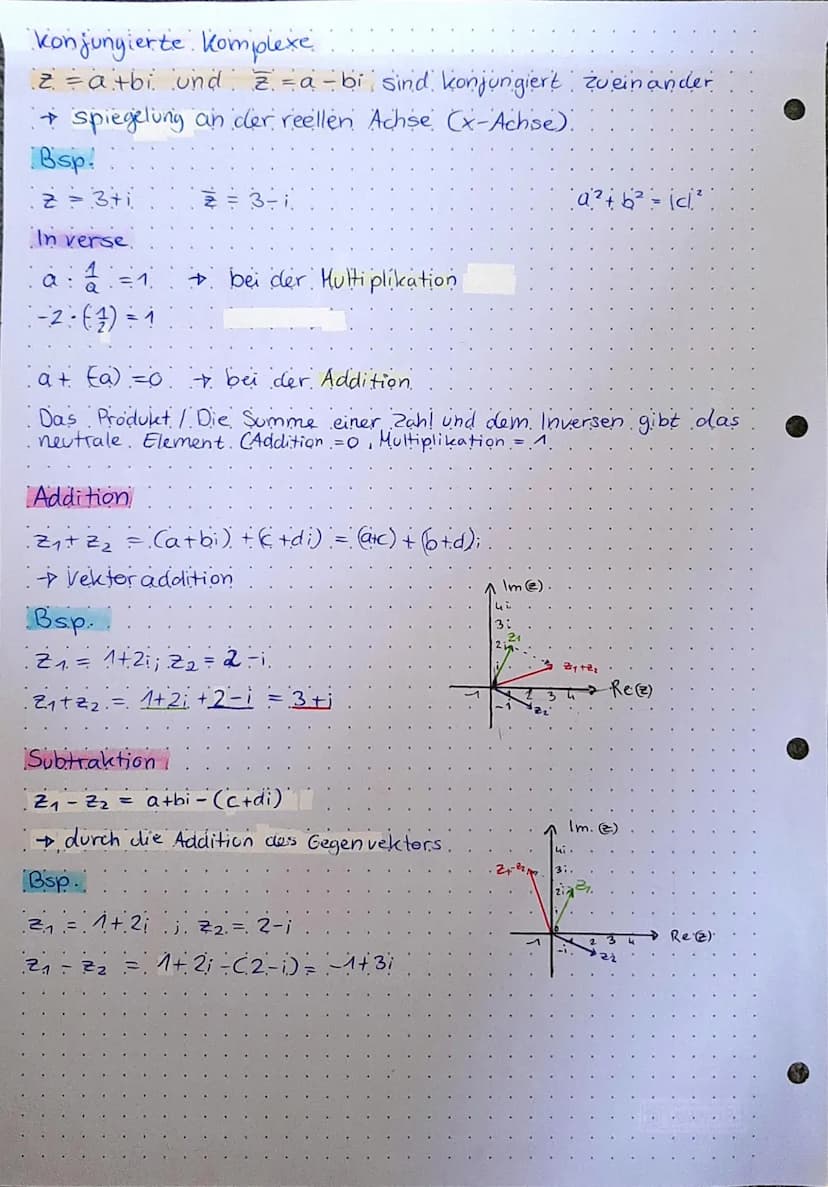 Konjungierte Komplexe
z = a+bi und z̅ = a-bi sind konjungiert zueinander
→ Spiegelung an der reellen Achse (x-Achse)
Bsp.
z = 3+i z̅ = 3-i a²+b² = |c|²
Inverse
a · 1/a = 1 → bei der Multiplikation
-2 · (-1/2) = 1
a + (-a) = 0 → bei der Addition
Das Produkt / Die Summe einer Zahl und dem Inversen gibt das
neutrale Element (Addition = 0, Multiplikation = 1
Addition
z₁ + z₂ = (a+bi) + (c+di) = (a+c) + (b+d)i
→ Vektoraddition
Im(z)
4i
3i
2i z₁
i z₁+z₂
-1 1 2 3 4 Re(z)
-i z₂
Bsp.
z₁ = 1+2i ; z₂ = 2-i
z₁+z₂ = 1+2i + 2-i = 3+i
Subtraktion
z₁ - z₂ = a+bi - (c+di)
→ durch die Addition des Gegenvektors
Im (z)
4i
z₁-z₂ 3i
2i z₁
-1 2 3 4 Re(z)
-i z₂
Bsp.
z₁ = 1+2i ; z₂ = 2-i
z₁ - z₂ = 1+2i - (2-i) = -1+3i